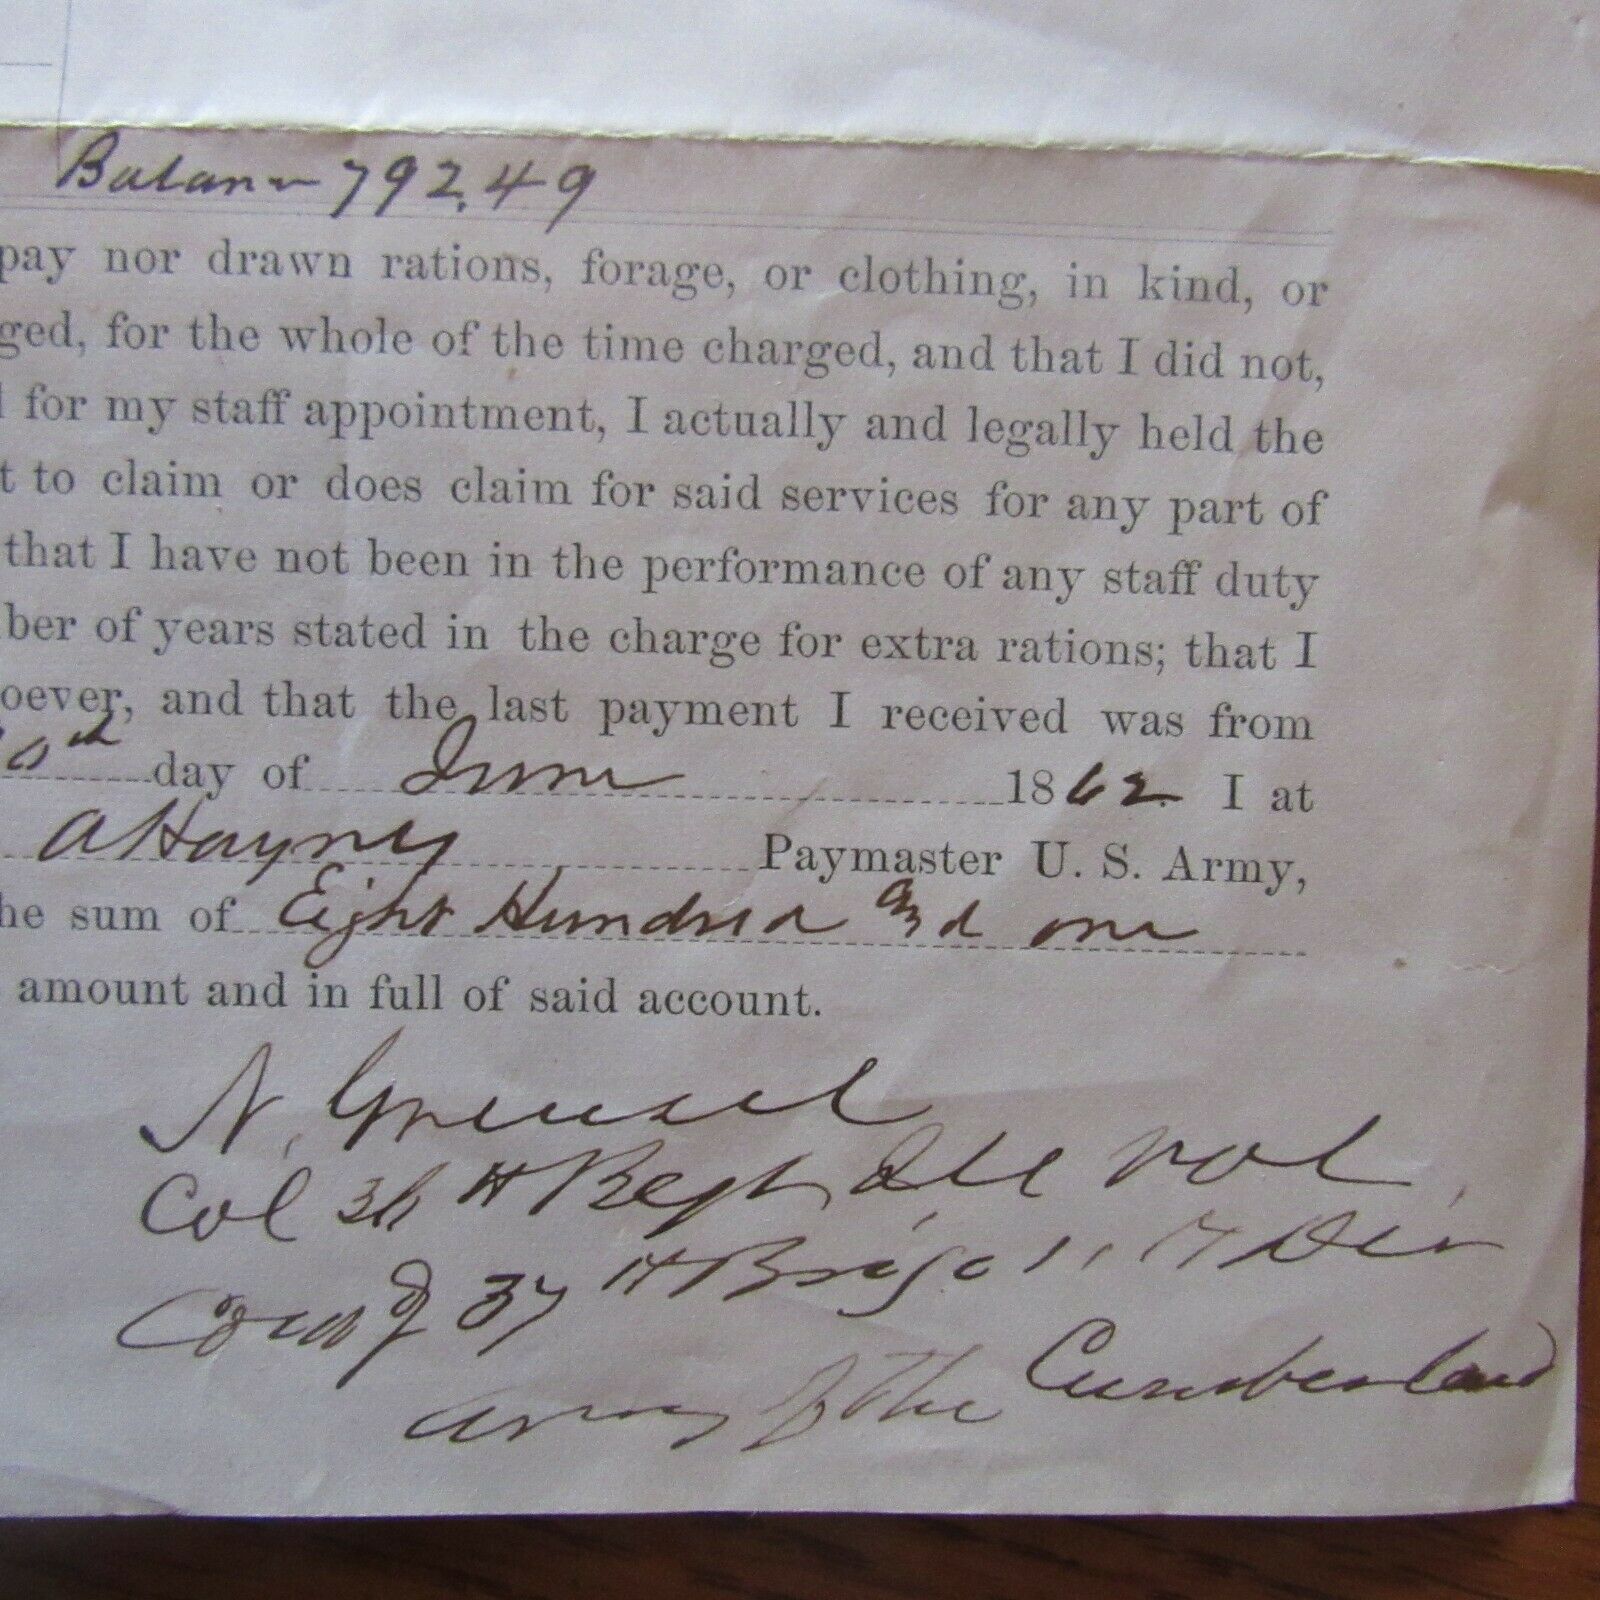 Balance 792.49
pay nor drawn rations, forage, or clothing, in kind, or
ged, for the whole of the time charged, and that I did not,
for my staff appointment, I actually and legally held the
t to claim or does claim for said services for any part of
that I have not been in the performance of any staff duty
ber of years stated in the charge for extra rations; that I
oever, and that the last payment I received was from
0th day of June 1862. I at
Paymaster U. S. Army,
he sum of Eight Hundred and one
amount and in full of said account.
N. Greusel
Col 36th Regt Ill Vol
Comdg 37th Brig. 11th Div
Army of the Cumberland